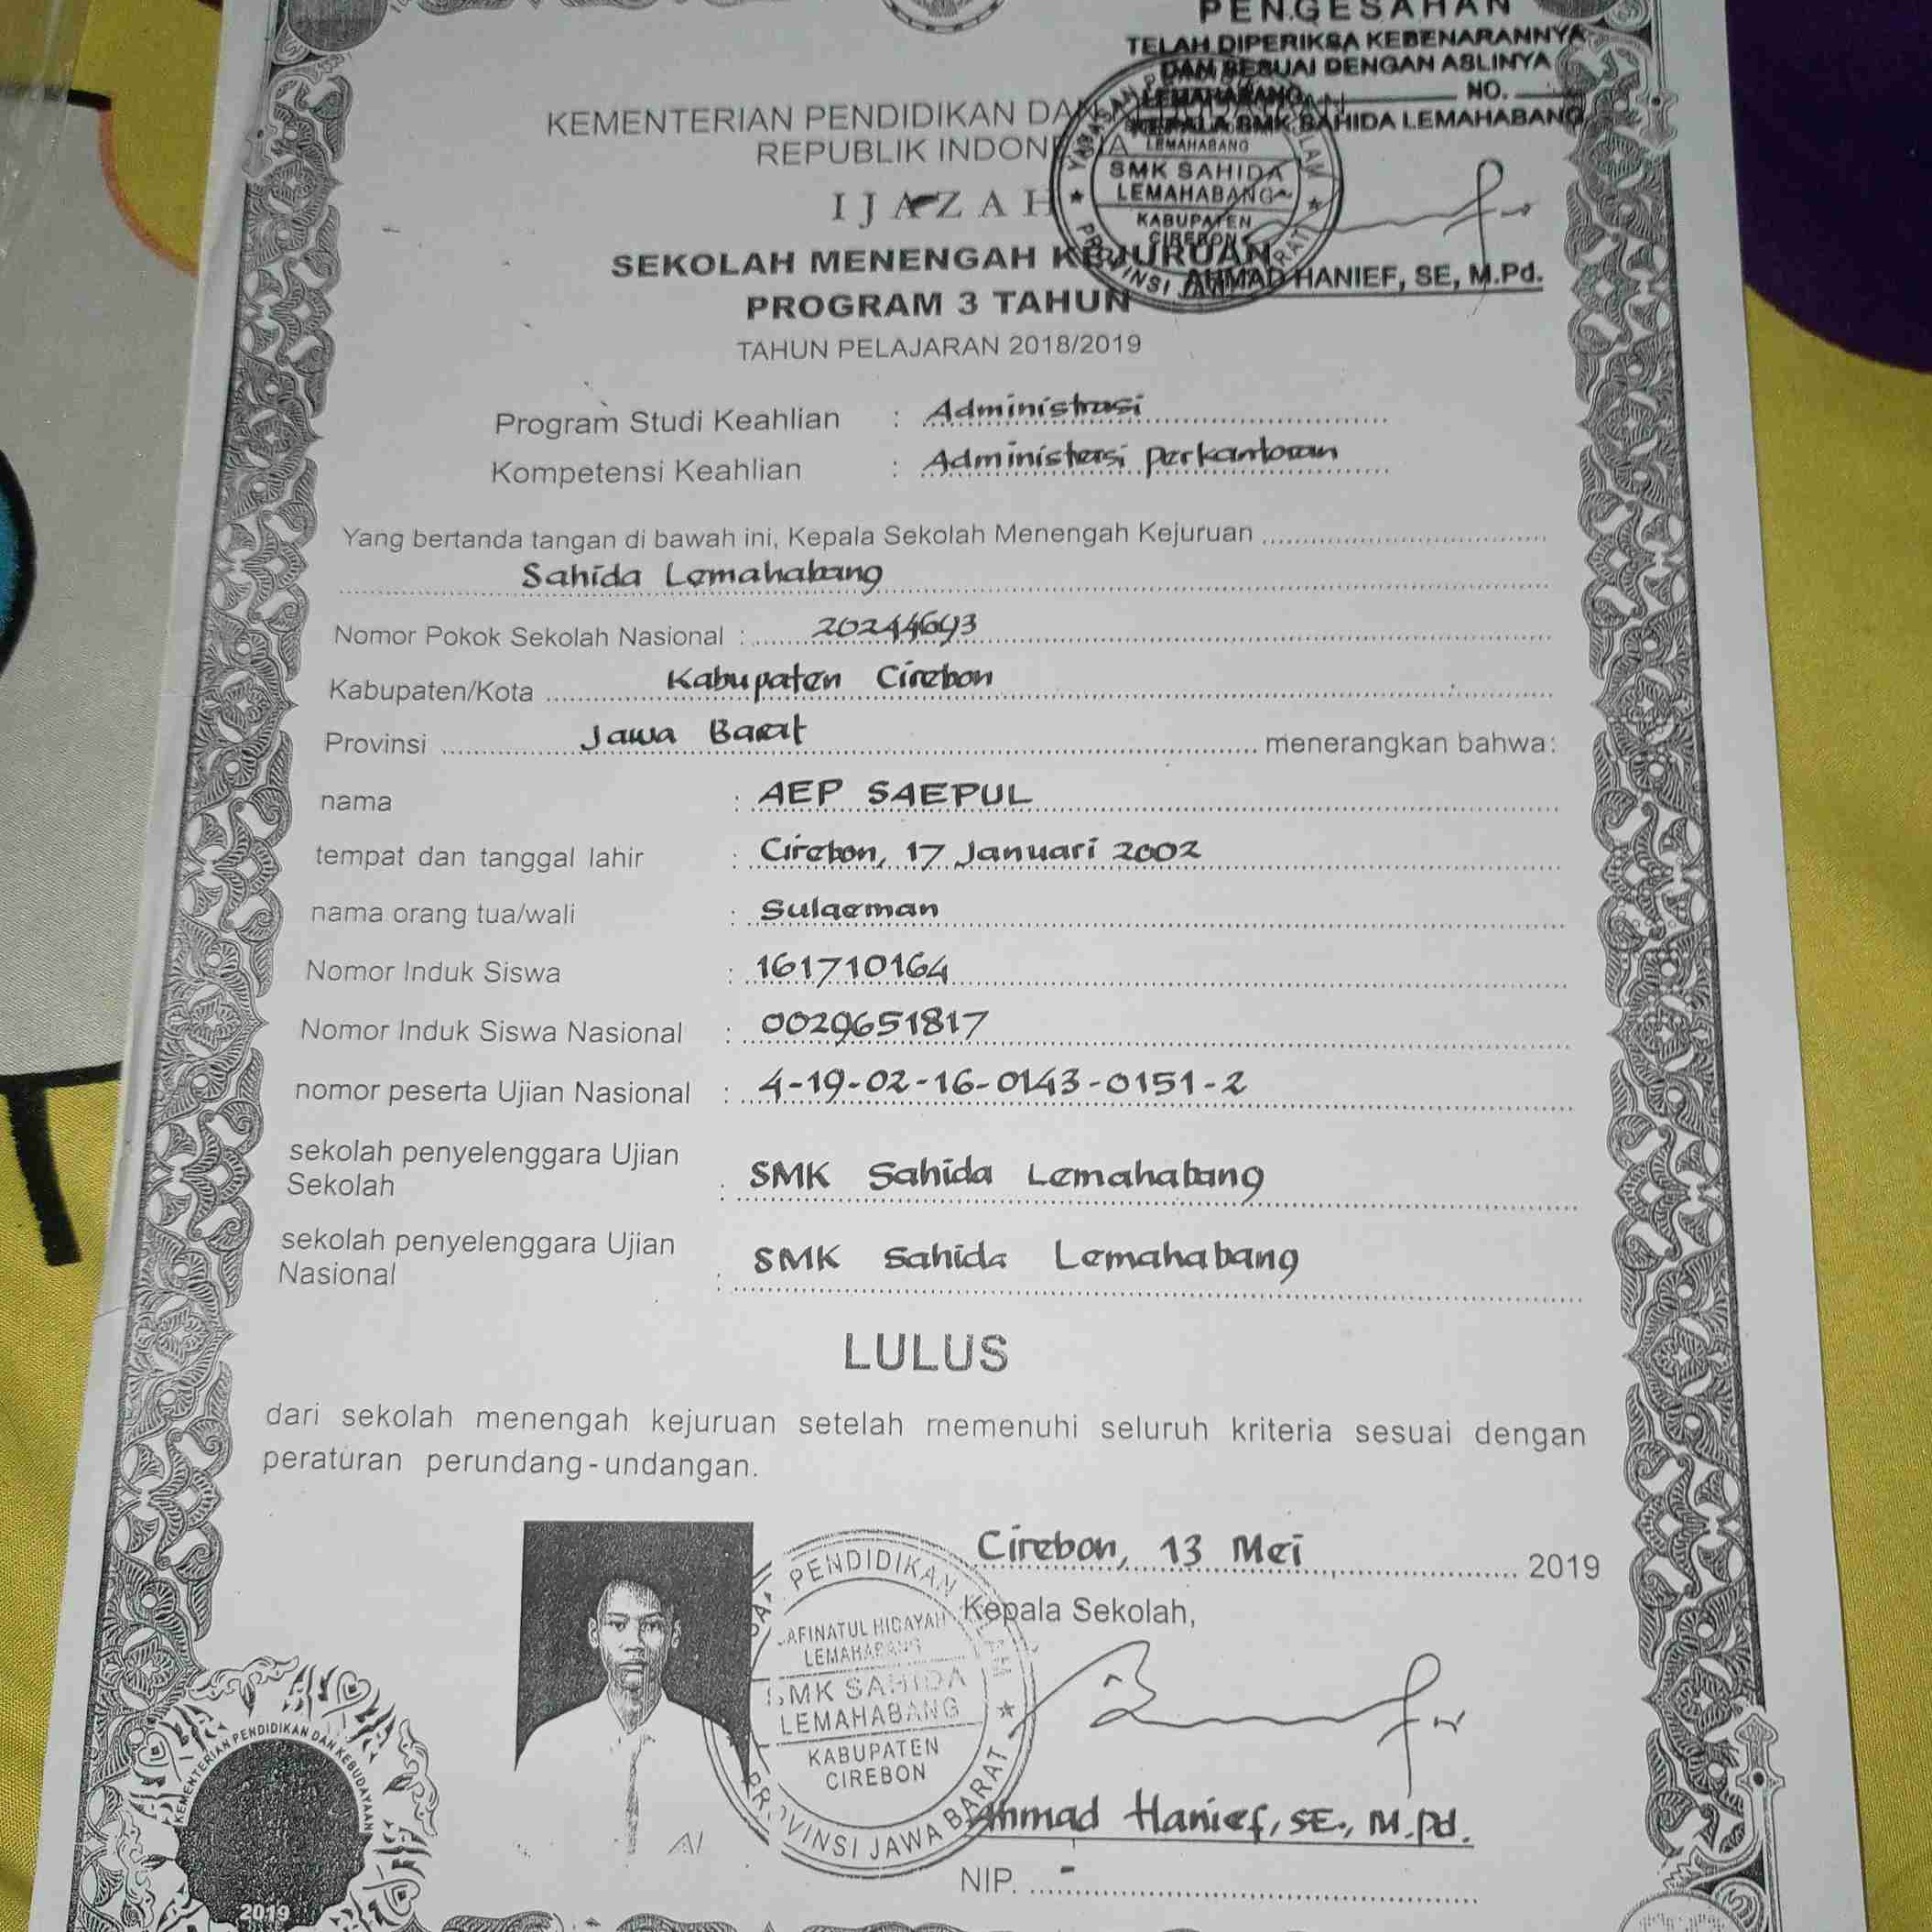 PENGESAHAN
TELAH DIPERIKSA KEBENARANNYA
DAN SESUAI DENGAN ASLINYA
LEMAHABANG, NO.
KEPALA SMK SAHIDA LEMAHABANG
KEMENTERIAN PENDIDIKAN DAN
REPUBLIK INDONESIA
LEMAHABANG
SMK SAHIDA
LEMAHABANG
KABUPATEN
CIREBON
IJAZAH
SEKOLAH MENENGAH KEJURUAN
AHMAD HANIEF, SE, M.Pd.
PROGRAM 3 TAHUN
TAHUN PELAJARAN 2018/2019
Program Studi Keahlian : Administrasi
Kompetensi Keahlian : Administrasi perkantoran
Yang bertanda tangan di bawah ini, Kepala Sekolah Menengah Kejuruan
Sahida Lemahabang
Nomor Pokok Sekolah Nasional : 20244693
Kabupaten/Kota Kabupaten Cirebon
Provinsi Jawa Barat menerangkan bahwa:
nama : AEP SAEPUL
tempat dan tanggal lahir : Cirebon, 17 Januari 2002
nama orang tua/wali : Sulaeman
Nomor Induk Siswa : 161710164
Nomor Induk Siswa Nasional : 0029651817
nomor peserta Ujian Nasional : 4-19-02-16-0143-0151-2
sekolah penyelenggara Ujian
Sekolah : SMK Sahida Lemahabang
sekolah penyelenggara Ujian
Nasional : SMK Sahida Lemahabang
LULUS
dari sekolah menengah kejuruan setelah memenuhi seluruh kriteria sesuai dengan
peraturan perundang-undangan.
Cirebon, 13 Mei 2019
Kepala Sekolah,
PENDIDIKAN ISLAM
SAFINATUL HIDAYAH
LEMAHABANG
SMK SAHIDA
LEMAHABANG
KABUPATEN
CIREBON
PROVINSI JAWA BARAT
Ahmad Hanief, SE., M.Pd.
NIP. -
KEMENTERIAN PENDIDIKAN DAN KEBUDAYAAN
2019